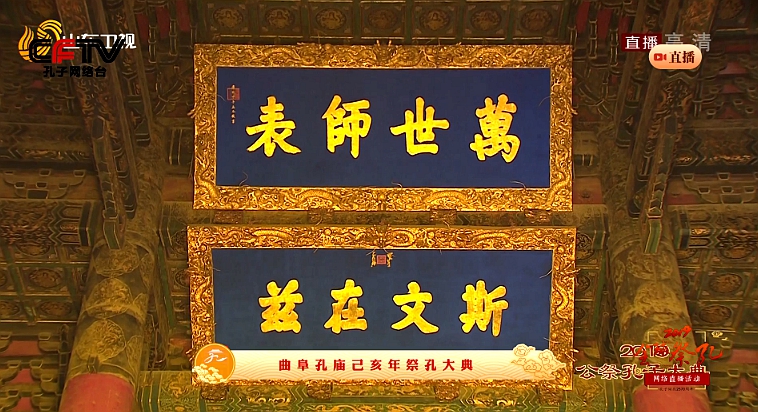 山东卫视
CFTV
孔子网络台
直播 高清
直播
萬世師表
斯文在兹
曲阜孔庙己亥年祭孔大典
2019
公祭孔子大典
网络直播活动